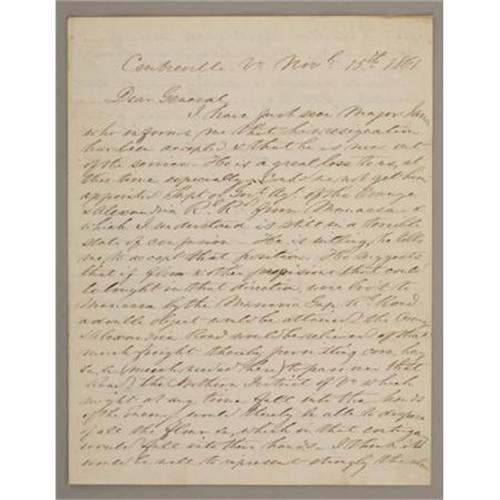 Centreville Va Novb. 15th. 1861
Dear General,
I have just seen Major
who informs me that his resignation
has been accepted & that he is now out
of the service. He is a great loss to us, at
this time especially. Could we not get him
appointed Supt or Genl Agt. of the Orange
& Alexandria R. Rd from Manassa
which I understand is still in a terrible
state of confusion - He is willing, he tells
me, to accept that position. He suggests
that if flour & other provisions that could
be bought in that direction, were bro't to
Manassa by the Manassa Gap Rd. Road
a double object would be attained, the Orange
& Alexandria Road would be relieved of that
much freight thereby permitting corn, hay
&c (much needed here) to pass over that
Road & the Northern District of Va which
might at any time fall into the hands
of the enemy would thereby be able to dispose
of all the flour &c, which in that
would fall into their hands. I think it
would be well to represent strongly the